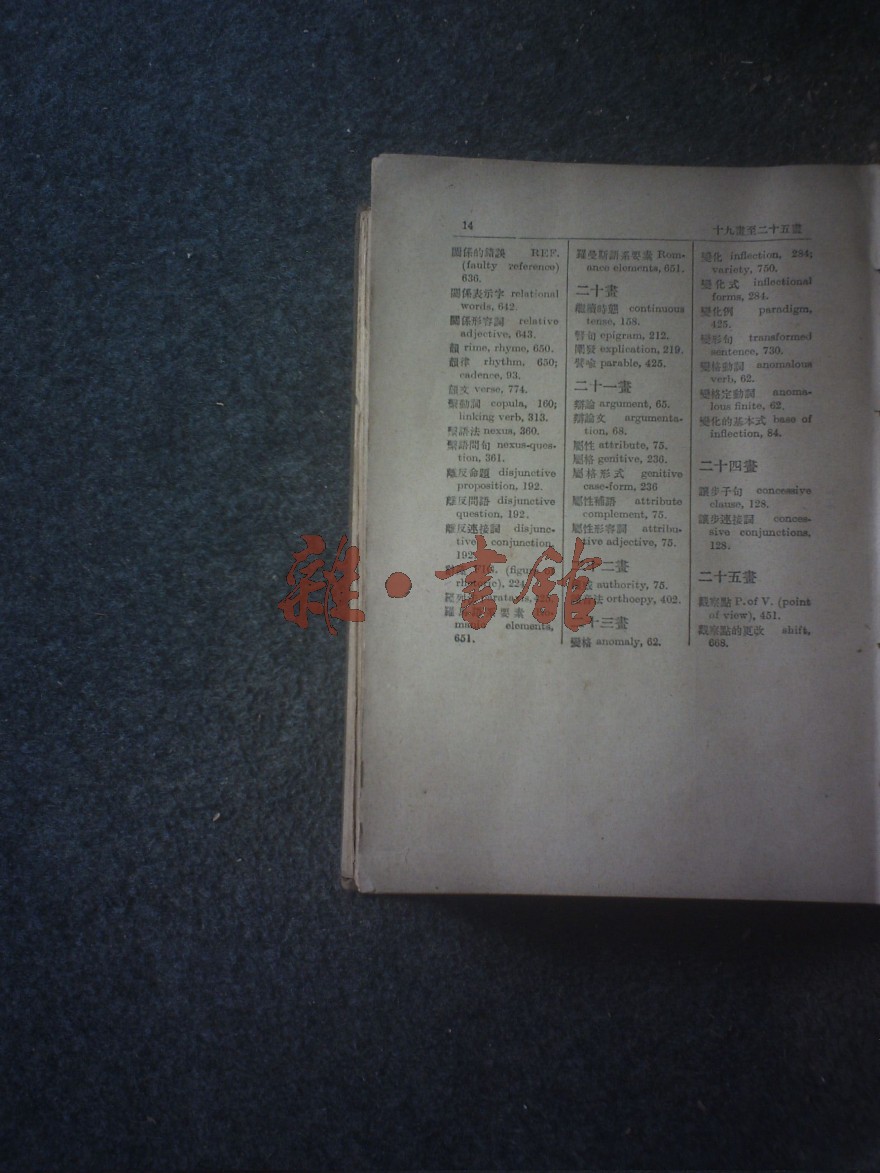 14
十九畫至二十五畫
關係的錯誤 REF.
(faulty reference)
636.
關係表示字 relational
words, 642.
關係形容詞 relative
adjective, 643.
韻 rime, rhyme, 650.
韻律 rhythm, 650;
cadence, 93.
韻文 verse, 774.
繫動詞 copula, 160;
linking verb, 313.
繫語法 nexus, 360.
繫語問句 nexus-ques-
tion, 361.
離反命題 disjunctive
proposition, 192.
離反問語 disjunctive
question, 192.
離反連接詞 disjunc-
tive conjunction,
192.
FIG. (figure
rhetoric), 224
羅
羅 要素
elements,
651.
羅曼斯語系要素 Rom-
ance elements, 651.
二十畫
繼續時態 continuous
tense, 158.
警句 epigram, 212.
闡發 explication, 219.
譬喻 parable, 425.
二十一畫
辯論 argument, 65.
辯論文 argumenta-
tion, 68.
屬性 attribute, 75.
屬格 genitive, 236.
屬格形式 genitive
case-form, 236
屬性補語 attribute
complement, 75.
屬性形容詞 attribu-
tive adjective, 75.
二畫
authority, 75.
法 orthoepy, 402.
十三畫
變格 anomaly, 62.
變化 inflection, 284;
variety, 750.
變化式 inflectional
forms, 284.
變化例 paradigm,
425.
變形句 transformed
sentence, 730.
變格動詞 anomalous
verb, 62.
變格定動詞 anoma-
lous finite, 62.
變化的基本式 base of
inflection, 84.
二十四畫
讓步子句 concessive
clause, 128.
讓步連接詞 conces-
sive conjunctions,
128.
二十五畫
觀察點 P. of V. (point
of view), 451.
觀察點的更改 shift,
668.
雜·書館